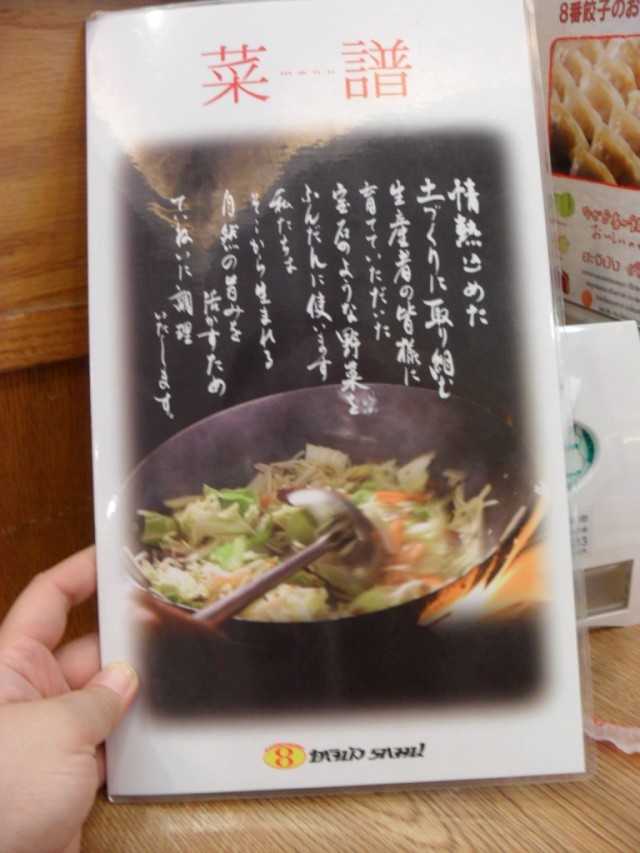 菜 menu 譜
情熱込めた
土づくりに取り組む
生産者の皆様に
育てていただいた
宝石のような野菜を
ふんだんに使います
私たちは
そこから生まれる
自然の旨みを
活かすため
ていねいに調理
いたします。
8
8番餃子のお